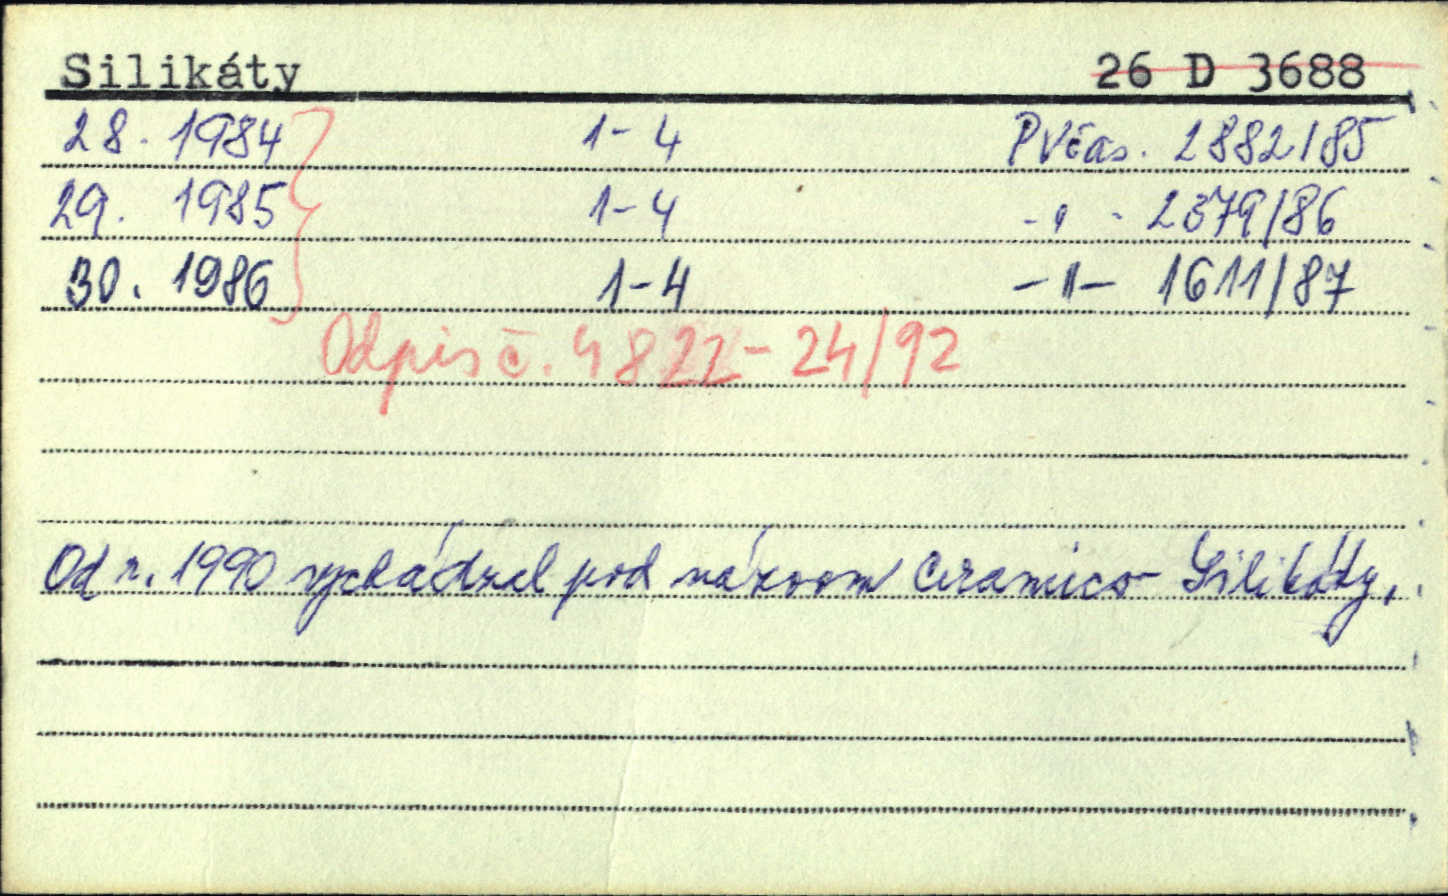 Silikáty 26 D 3688
28. 1984 1-4 PVčas. 2882/85
29. 1985 1-4 -"- 2379/86
30. 1986 1-4 -"- 1611/87
Odpis č. 4822-24/92
Od r. 1990 vychádzal pod názvom Ceramics Silikáty.